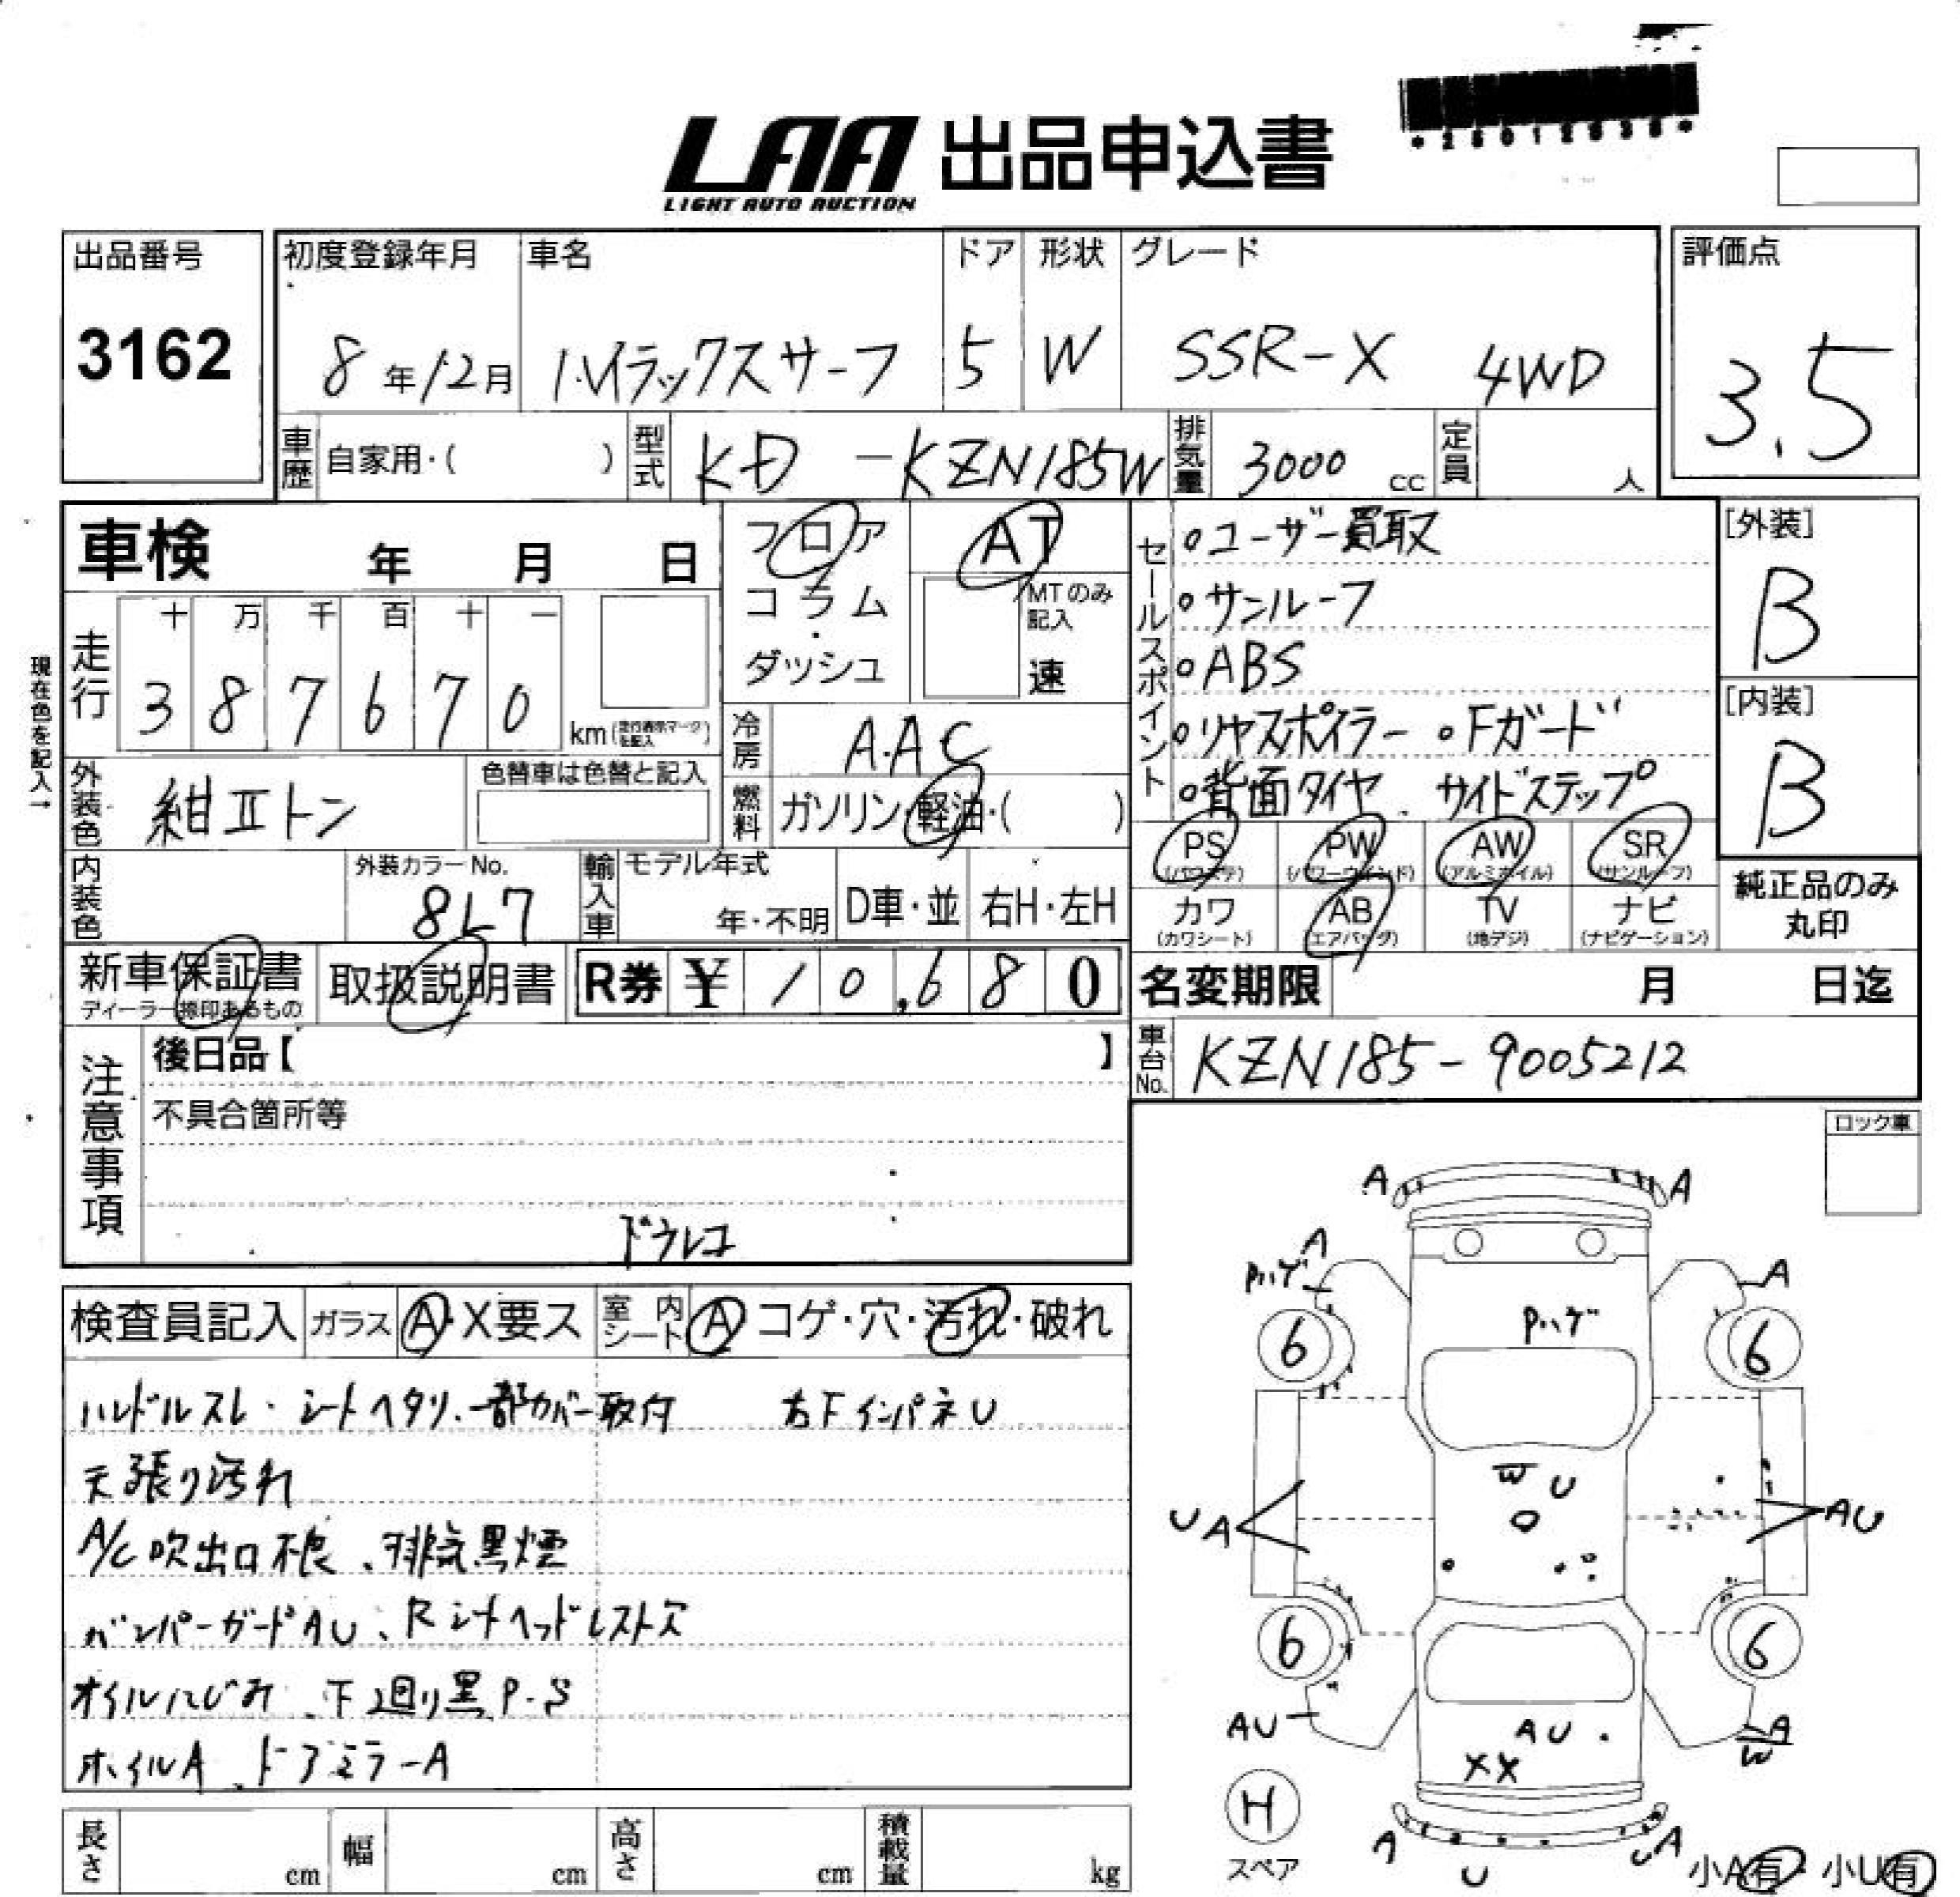 LAA 出品申込書
LIGHT AUTO AUCTION
出品番号
3162
初度登録年月
8年12月
車名
ハイラックスサーフ
ドア
5
形状
W
グレード
SSR-X 4WD
評価点
3.5
車歴 自家用・( )
型式 KD -KZN185W
排気量 3000 cc
定員 人
車検 年 月 日
走行
十 万 千 百 十 一
3 8 7 6 7 0 km(走行表示マークを記入)
現在色を記入→
外装色 紺Ⅱトン
色替車は色替と記入
内装色
外装カラーNo.
8L7
フロア
コラム・
ダッシュ
AT
MTのみ記入
速
冷房 A.A.C
燃料 ガソリン・軽油・( )
輸入車
モデル年式
年・不明
D車・並
右H・左H
セールスポイント
・ユーザー買取
・サンルーフ
・ABS
・リヤスポイラー ・Fガード
・背面タイヤ、サイドステップ
[外装]
B
[内装]
B
PS (パワステ)
PW (パワーウインド)
AW (アルミホイル)
SR (サンルーフ)
カワ (カワシート)
AB (エアバッグ)
TV (地デジ)
ナビ (ナビゲーション)
純正品のみ
丸印
新車保証書
ディーラー捺印あるもの
取扱説明書
R券 ¥ 10,680
名変期限 月 日迄
車台No. KZN185-9005212
注意事項
後日品【 】
不具合箇所等
ドラレコ
ロック車
検査員記入
ガラス A・X要ス
室内シート A コゲ・穴・汚れ・破れ
ハンドルスレ・シートヘタリ、一部カバー取付 右下インパネU
天張り汚れ
A/C吹出口不良、排気黒煙
バンパーガードAU、Rシートヘッドレスト穴
オイルにじみ、下廻り黒P・S
ホイルA、ドアミラーA
A A
A
Pハゲ
A
Pハゲ
6 6
W U
UA
AU
6 6
AU
AU
A
W
XX
H
スペア
A
U
UA
小A有・小U有
長さ cm
幅 cm
高さ cm
積載量 kg